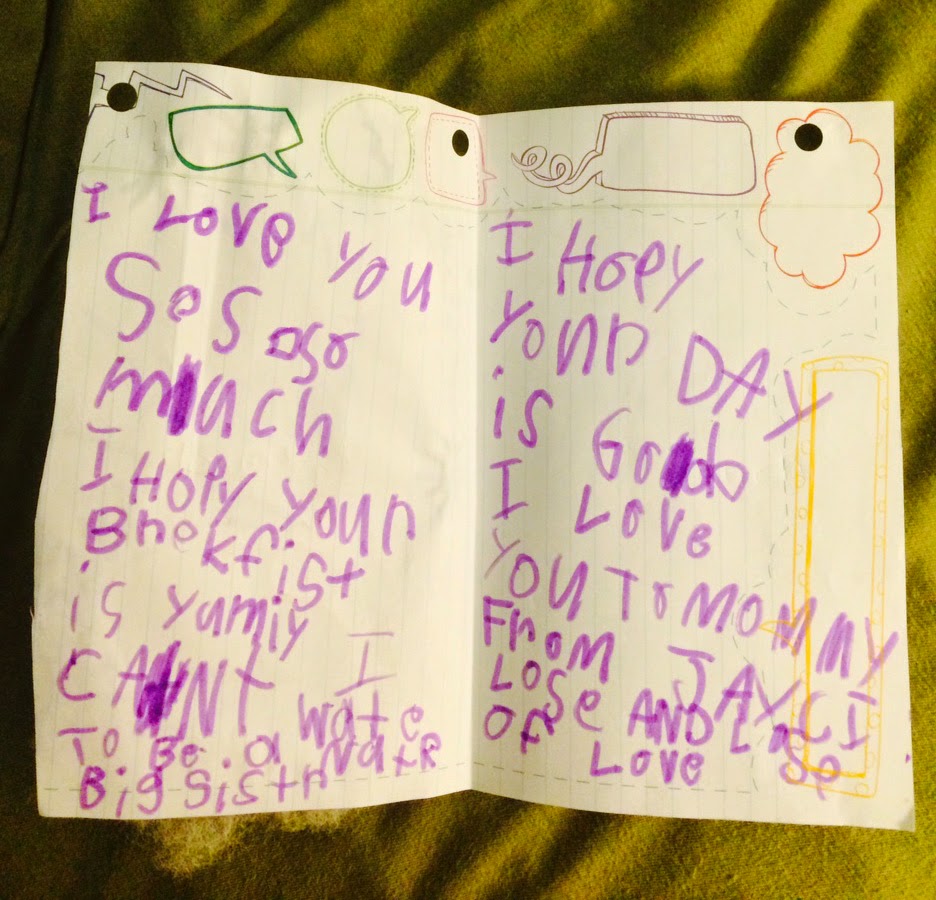 I LOVE YOU
So S oso
much
I HOPY youn
Bnekfist
is yumiy
CANT I
wate
To Be a
Big sistn
I HOPY
youn DAY
is Good
I LOVE
YOU To MOMMY
FROM JAYCI
LOSE
OF AND LOSE
LOVE